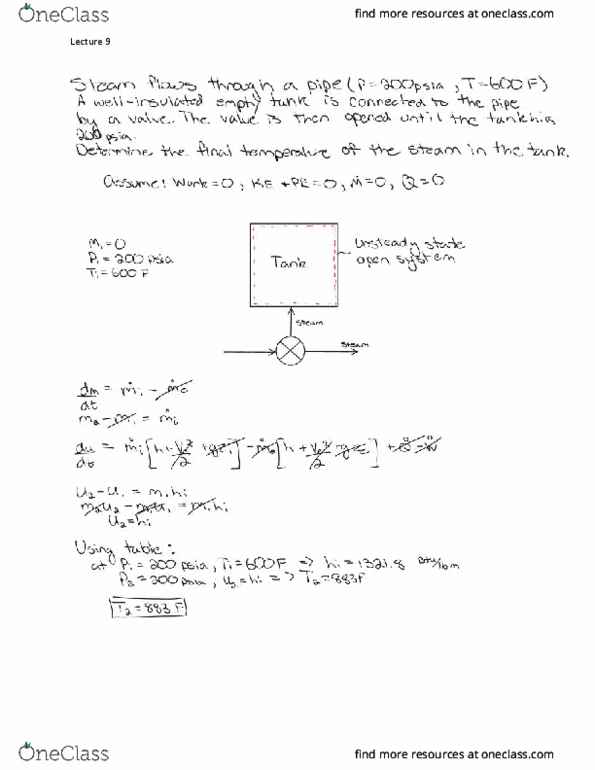 OneClass
find more resources at oneclass.com
Lecture 9
Steam flows through a pipe (P=200psia, T=600F)
A well-insulated empty tank is connected to the pipe
by a valve. The valve is then opened until the tank hits
200 psia.
Determine the final temperature of the steam in the tank.
Assume: Work=0, KE+PE=0, M=0, Q=0
M₁=0
Pᵢ=200 psia
Tᵢ=600 F
Tank
Unsteady state
open system
Steam
Steam
dm/dt = ṁᵢ - ṁₑ
m₂-m₁ = ṁᵢ
du/dt = ṁᵢ[h+Vᵢ²/2+gzᵢ]-ṁₑ[h+Vₑ²/2+gzₑ]+Q̇-Ẇ
U₂-U₁ = mᵢhᵢ
m₂u₂-m₁u₁=mᵢhᵢ
U₂=hᵢ
Using table:
at Pᵢ=200 psia, Tᵢ=600F => hᵢ=1321.8 Btu/lbm
P₂=200psia, u₂=hᵢ => T₂=883F
T₂=883 F
OneClass
find more resources at oneclass.com